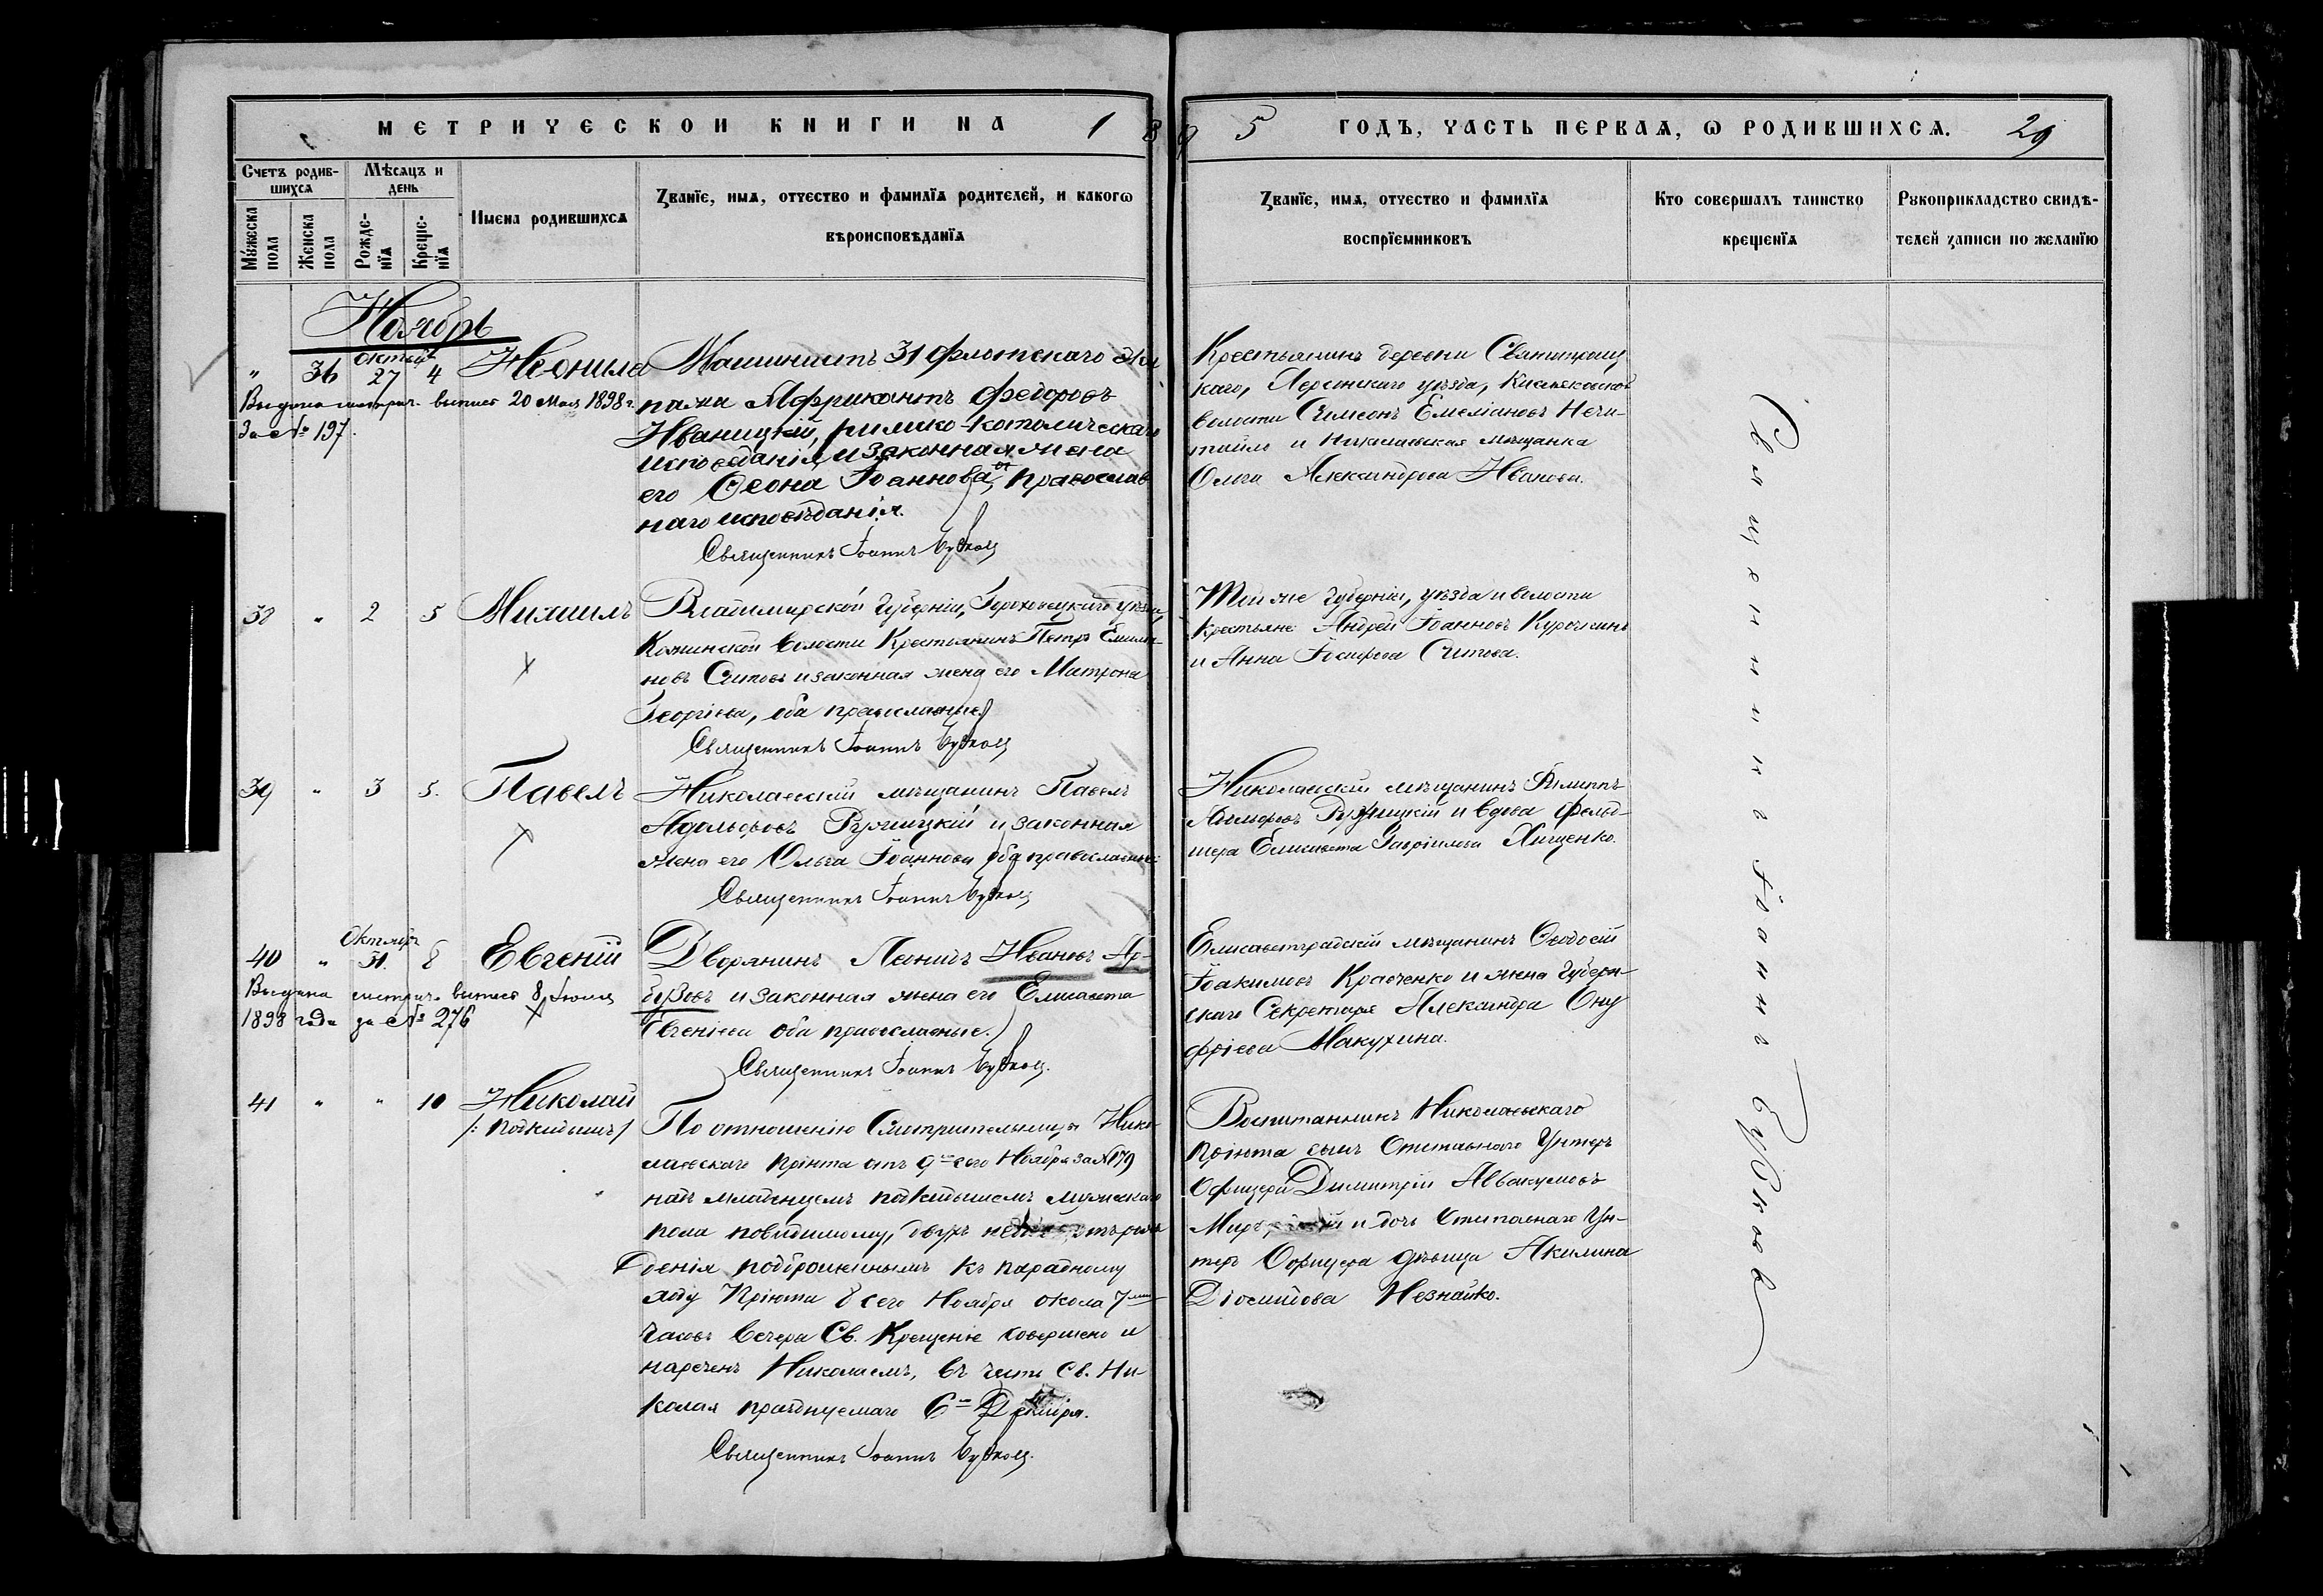 МЕТРИЧЕСКОЙ КНИГИ НА 1895 ГОДЪ, ЧАСТЬ ПЕРВАЯ, Ѡ РОДИВШИХСЯ. 29
Счетъ родившихся
Мѣсяцъ и день
Мужеска пола
Женска пола
Рожденїя
Крещенїя
Имена родившихся
Званїе, имя, отчество и фамилїя родителей, и какогѡ
вѣроисповѣданїя
Званїе, имя, отчество и фамилїя
воспрїемниковъ
Кто совершалъ таинство
крещенїя
Рукоприкладство свидѣ-
телей записи по желанїю
Ноябрь
" 36 Октяб. 27 4 Неонила
Выдана метрич. выпись 20 Мая 1898 г.
За № 197.
Машинистъ 31 флотскаго эки
пажа Африкантъ Федоровъ
Иваницкій, римско-католическаго
исповѣданія, и законная жена
его Ѳеона Іоаннова, православ
наго исповѣданія.
Священникъ Іоаннъ
Крестьянинъ деревни
каго, Херсонскаго уѣзда,
волости Симеонъ Емеліановъ Нечи-
тайло и Николаевская мѣщанка
Ольга Александрова Иванова.
38 " 2 5 Михаилъ
Владимирской губерніи, Гороховецкаго уѣзда,
волости Крестьянинъ Петръ Емилиа
новъ Ситовъ и законная жена его Матрона
Георгіева, оба православные.
Священникъ Іоаннъ
Той же губерніи, уѣзда и волости
крестьяне Андрей Іоанновъ Курочкинъ
и Анна Іосифова Ситова.
39 " 3 5. Павелъ
Николаевскій мѣщанинъ Павелъ
Адольфовъ Ружицкій и законная
жена его Ольга Іоаннова оба православные.
Священникъ Іоаннъ
Николаевскій мѣщанинъ Филиппъ
Ружицкій и вдова фельд-
шера Елисавета Гавріилова Хищенко.
40 " Октября 31. 8 Евгеній
Выдана метрич. выпись 8 Іюля
1898 года за № 276
Дворянинъ Леонидъ Ивановъ Ар-
бузовъ и законная жена его Елисавета
Евгеніева оба православные.
Священникъ Іоаннъ
Елисаветградскій мѣщанинъ Ѳеодосій
Іоакимовъ Кравченко и жена Губерн-
скаго Секретаря Александра Ону
фріева Макухина.
41 " " 10 Николай
/: подкидышъ /
По отношенію Смотрительницы Нико
лаевскаго Пріюта отъ 9го сего Ноября за № 179
надъ младенцемъ подкидышемъ мужескаго
пола повидимому, двухъ отъ рож
денія подброшеннымъ къ парадному
ходу Пріюта 8 сего Ноября около 7ми
часовъ вечера Св. Крещеніе совершено и
нареченъ Николаемъ, въ честь Св. Ни-
колая празднуемаго 6го Декабря.
Священникъ Іоаннъ
Воспитанникъ Николаевскаго
Пріюта сынъ Отставного Унтеръ
Офицера Димитрій Аввакумовъ
и дочь Отставнаго Ун-
теръ Офицера дѣвица Акилина
Діомидова Незнайко.
Священникъ Іоаннъ